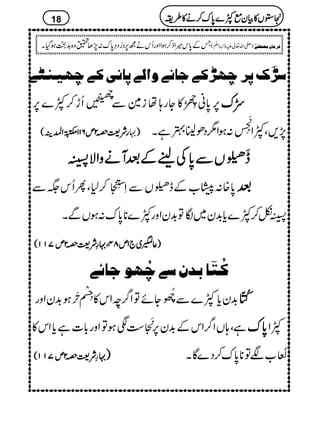 18
نجاستوں کا بیان مع کپڑے پاک کرنے کا طریقہ
فرمانِ مصطفےٰ: جس کے پاس میرا ذکر ہوا اور اُس نے مجھ پر دُرُودِ پاک نہ پڑھا تحقیق وہ بد بخت ہو گیا۔
سڑک پر چھڑکے جانے والے پانی کے چھینٹے
سڑک پر پانی چھڑکا جا رہا تھا زمین سے چھینٹیں اُڑ کر کپڑے پر
پڑیں، کپڑا نَجِس نہ ہوا مگر دھو لینا بہتر ہے۔ (بہارِ شریعت حصہ ۲ ص ۱۱۶ مکتبۃ المدینہ)
ڈھیلوں سے پاکی لینے کے بعد آنے والا پسینہ
بعد پاخانہ پیشاب کے ڈھیلوں سے اِستِنجا کر لیا، پھر اُس جگہ سے
پسینہ نکل کر کپڑے یا بدن میں لگا تو بدن اور کپڑے ناپاک نہ ہوں گے۔
(عالمگیری ج ۱ ص ۴۸، بہارِ شریعت حصہ ۲ ص ۱۱۷)
کُتّا بدن سے چھُو جائے
کُتّا بدن یا کپڑے سے چھُو جائے تو اگرچہ اس کا جِسْم تَر ہو بدن اور
کپڑا پاک ہے، ہاں اگر اس کے بدن پر نَجاست لگی ہو تو اور بات ہے یا اس کا
لُعاب لگے تو ناپاک کر دے گا۔ (بہارِ شریعت حصہ ۲ ص ۱۱۷)